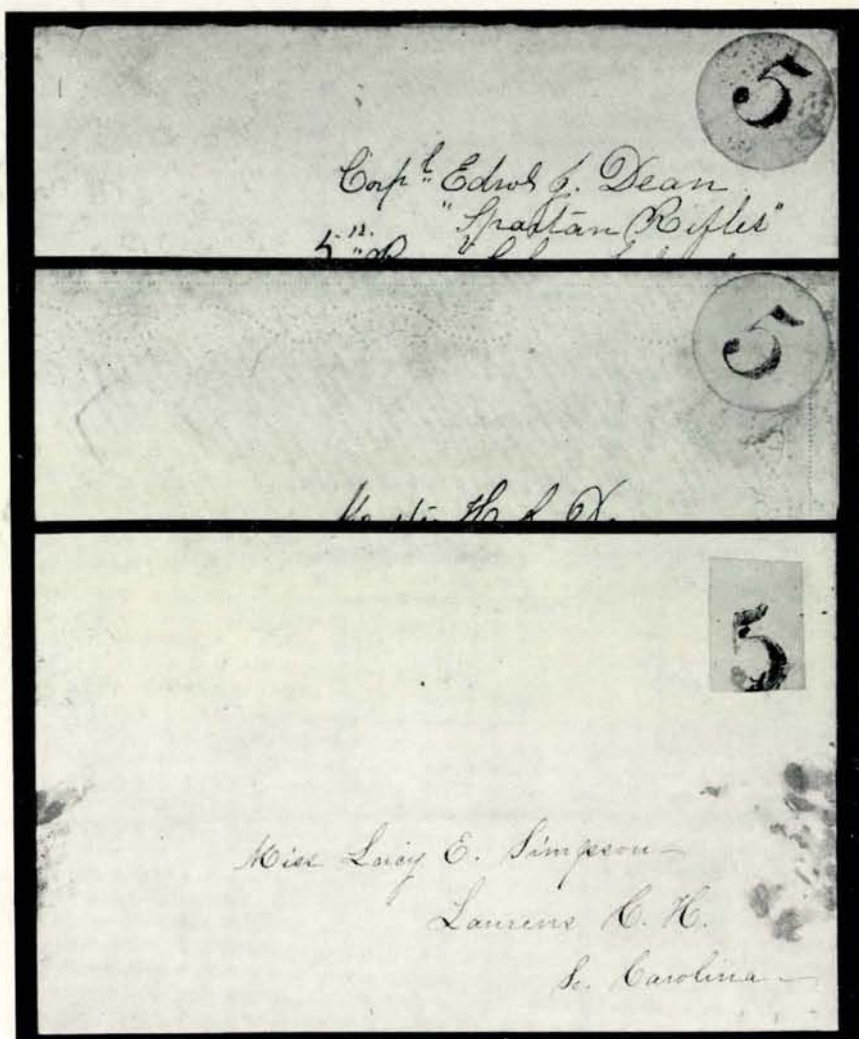 5
Corpl Edwd J. Dean
"Spartan Rifles"
5
5
Miss Lucy E. Simpson
Laurens C. H.
So. Carolina